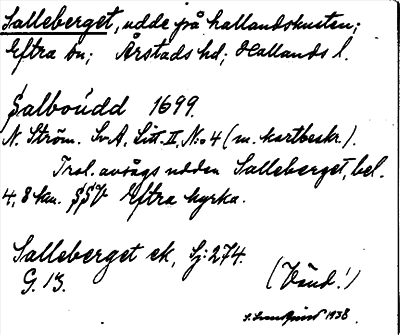 Salleberget, udde på hallandskusten;
Eftra sn; Årstads hd; Hallands l.
Salboúdd 1699.
N. Ström. Sv.A, Litt. II, No 4 (m. kartbeskr.).
Trol. avsågs udden Salleberget, bel.
4,8 km. SSV Eftra kyrka.
Salleberget ek, Sj: 274.
G. 13.
(Vänd!)
S. 1938